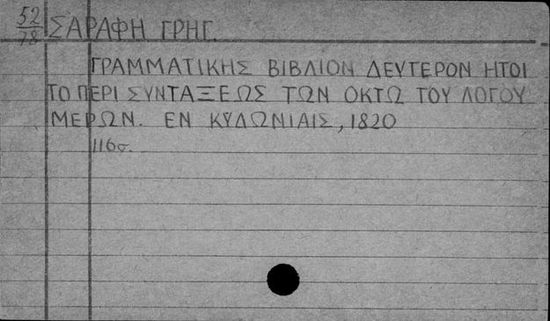 52
78
ΣΑΡΑΦΗ ΓΡΗΓ.
ΓΡΑΜΜΑΤΙΚΗΣ ΒΙΒΛΙΟΝ ΔΕΥΤΕΡΟΝ ΗΤΟΙ
ΤΟ ΠΕΡΙ ΣΥΝΤΑΞΕΩΣ ΤΩΝ ΟΚΤΩ ΤΟΥ ΛΟΓΟΥ
ΜΕΡΩΝ. ΕΝ ΚΥΔΩΝΙΑΙΣ, 1820
116σ.